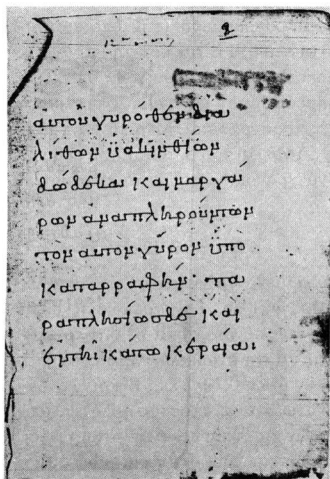 αυτοῦ γυρόθεν δια
λίθων ϋακινθίων
δώδεκα και μαργά
ρων ἀναπληρούντων
τον αυτον γύρον ϋπο
καταρραφήν· πα
ραπλησίως δε καὶ
εν τῆι κάτω κεραίαι